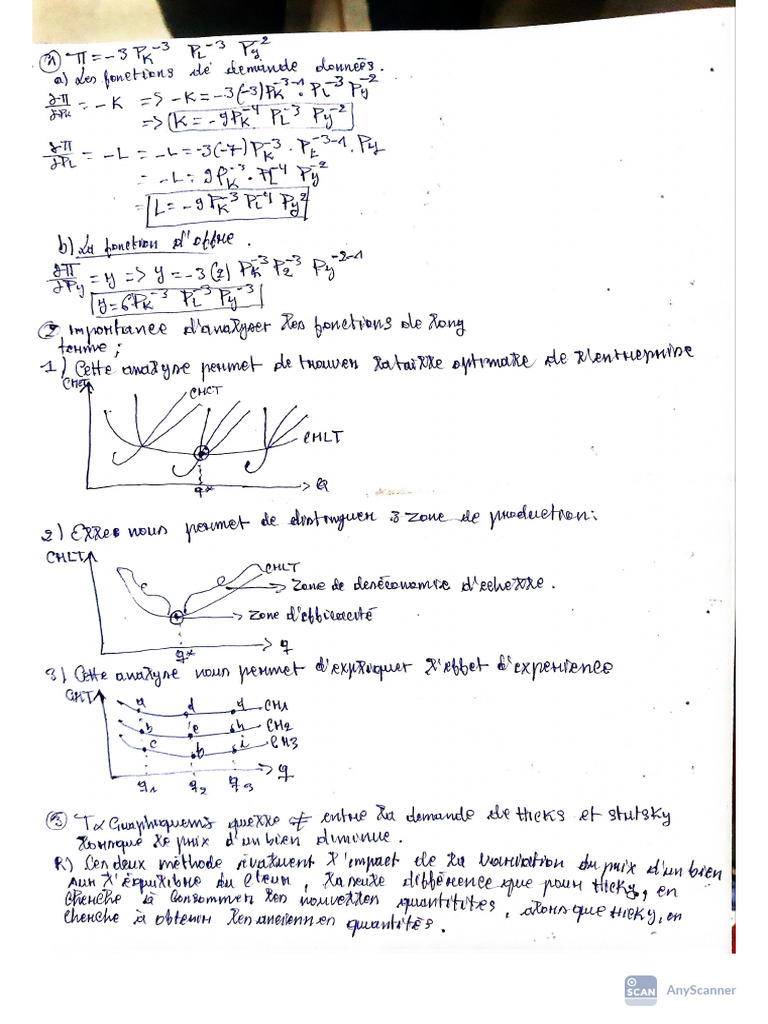 ① π = -3 P_K^-3 P_L^-3 P_y^2
a) Les fonctions de demande données.
∂π/∂P_K = -K => -K = -3(-3)P_K^-3-1 . P_L^-3 P_y^-2
=> K = -9P_K^-4 P_L^-3 P_y^-2
∂π/∂P_L = -L = -L = -3(-7)P_K^-3 . P_L^-3-1 . P_y
= -L = 9P_K^-3 . P_L^-4 P_y^-2
= L = -9P_K^-3 P_L^-4 P_y^2
b) La fonction d'offre.
∂π/∂P_y = y => y = -3(2)P_K^-3 P_2^-3 P_y^-2-1
y = 6P_K^-3 P_L^-3 P_y^-3
② importance d'analyser les fonctions de long
terme ;
1) Cette analyse permet de trouver la taille optimale de l'entreprise
CMCT
CMLT
q*
Q
2) Elles nous permet de distinguer 3 zone de production :
CMLT
CMLT
Zone de deséconomie d'echelle.
Zone d'efficacité
q*
q
3) Cette analyse nous permet d'expliquer l'effet d'experience
CMLT
a d g CM1
b e h CM2
c f i CM3
q1 q2 q3 q
③ quelle ≠ entre la demande de Hicks et slutsky
lorsque le prix d'un bien diminue.
R) Les deux méthode évaluent l'impact de la variation du prix d'un bien
sur l'équilibre du , la seule différence que pour Hicky, en
cherche à consommer les nouvelles quantitités, alors que Hicky, en
cherche à obtenir les anciennes quantités.
SCAN AnyScanner